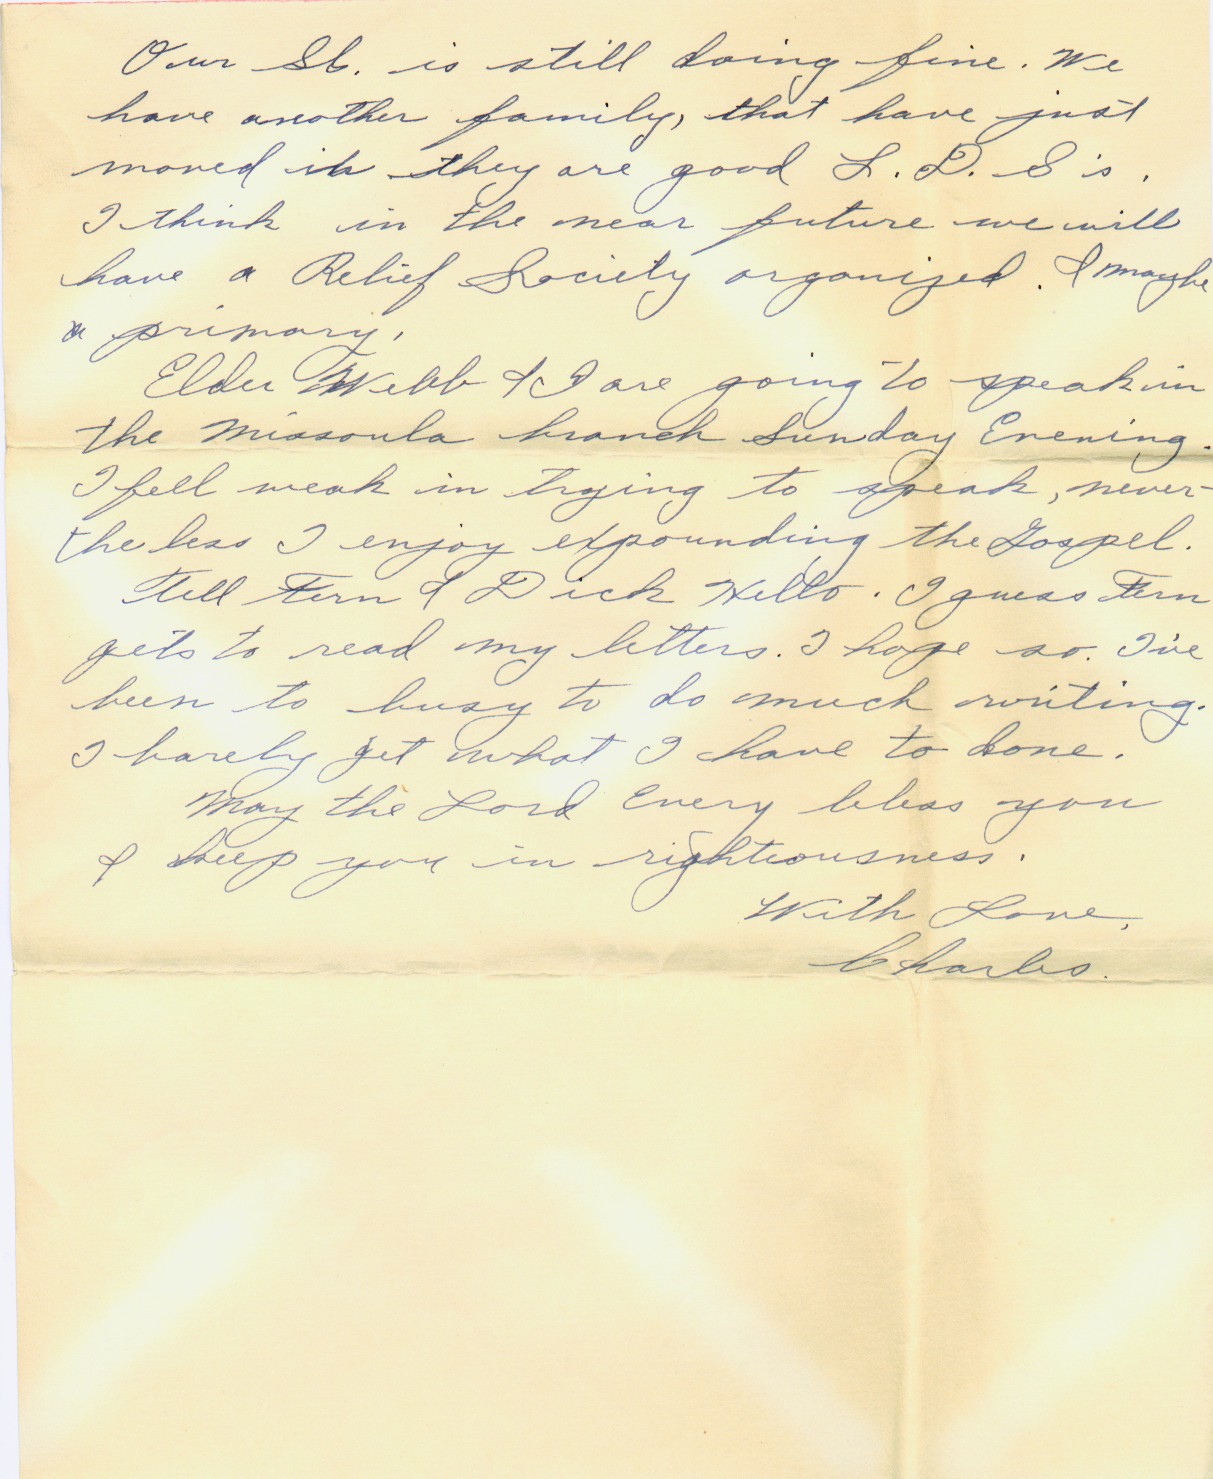 Our Sb. is still doing fine. We
have another family, that have just
moved in they are good L. D. S's.
I think in the near future we will
have a Relief Society organized. & maybe
a primary.
Elder Webb & I are going to speak in
the Missoula branch Sunday Evening.
I fell weak in trying to speak, never-
the less I enjoy expounding the Gospel.
Tell Fern & Dick Hello. I guess Fern
gets to read my letters. I hope so. I've
been to busy to do much writing.
I barely get what I have to done.
May the Lord Every bless you
& keep you in righteousness.
With Love,
Charles.